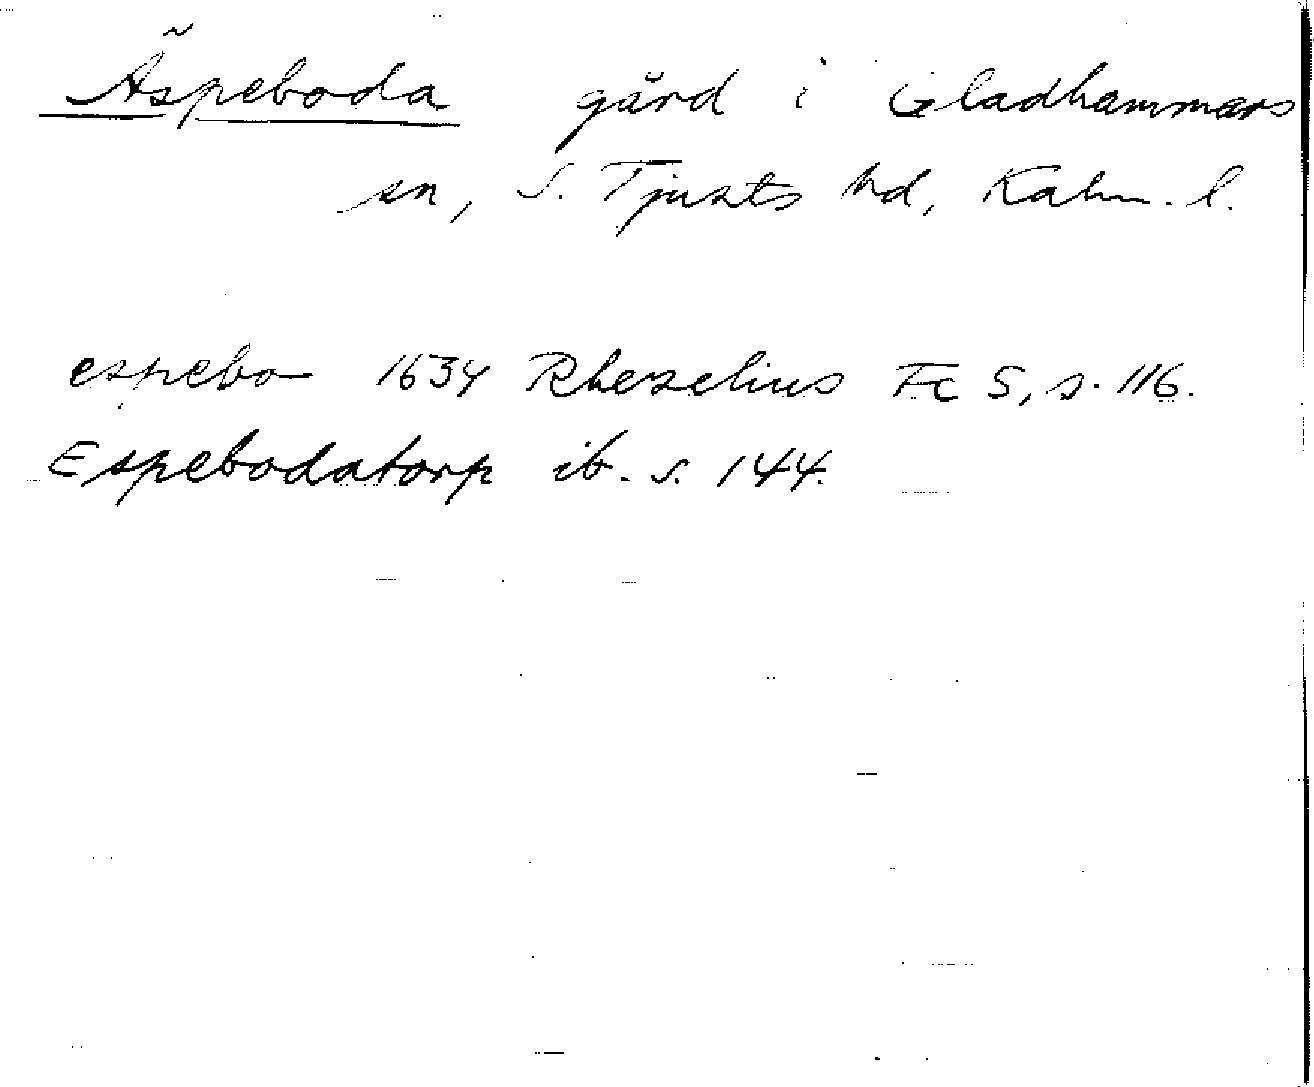 Äspeboda gård i Gladhammars
sn, S. Tjusts hd, Kalm. l.
espebo 1634 Rhezelius Fc 5, s. 116.
Espebodatorp ib. s. 144.